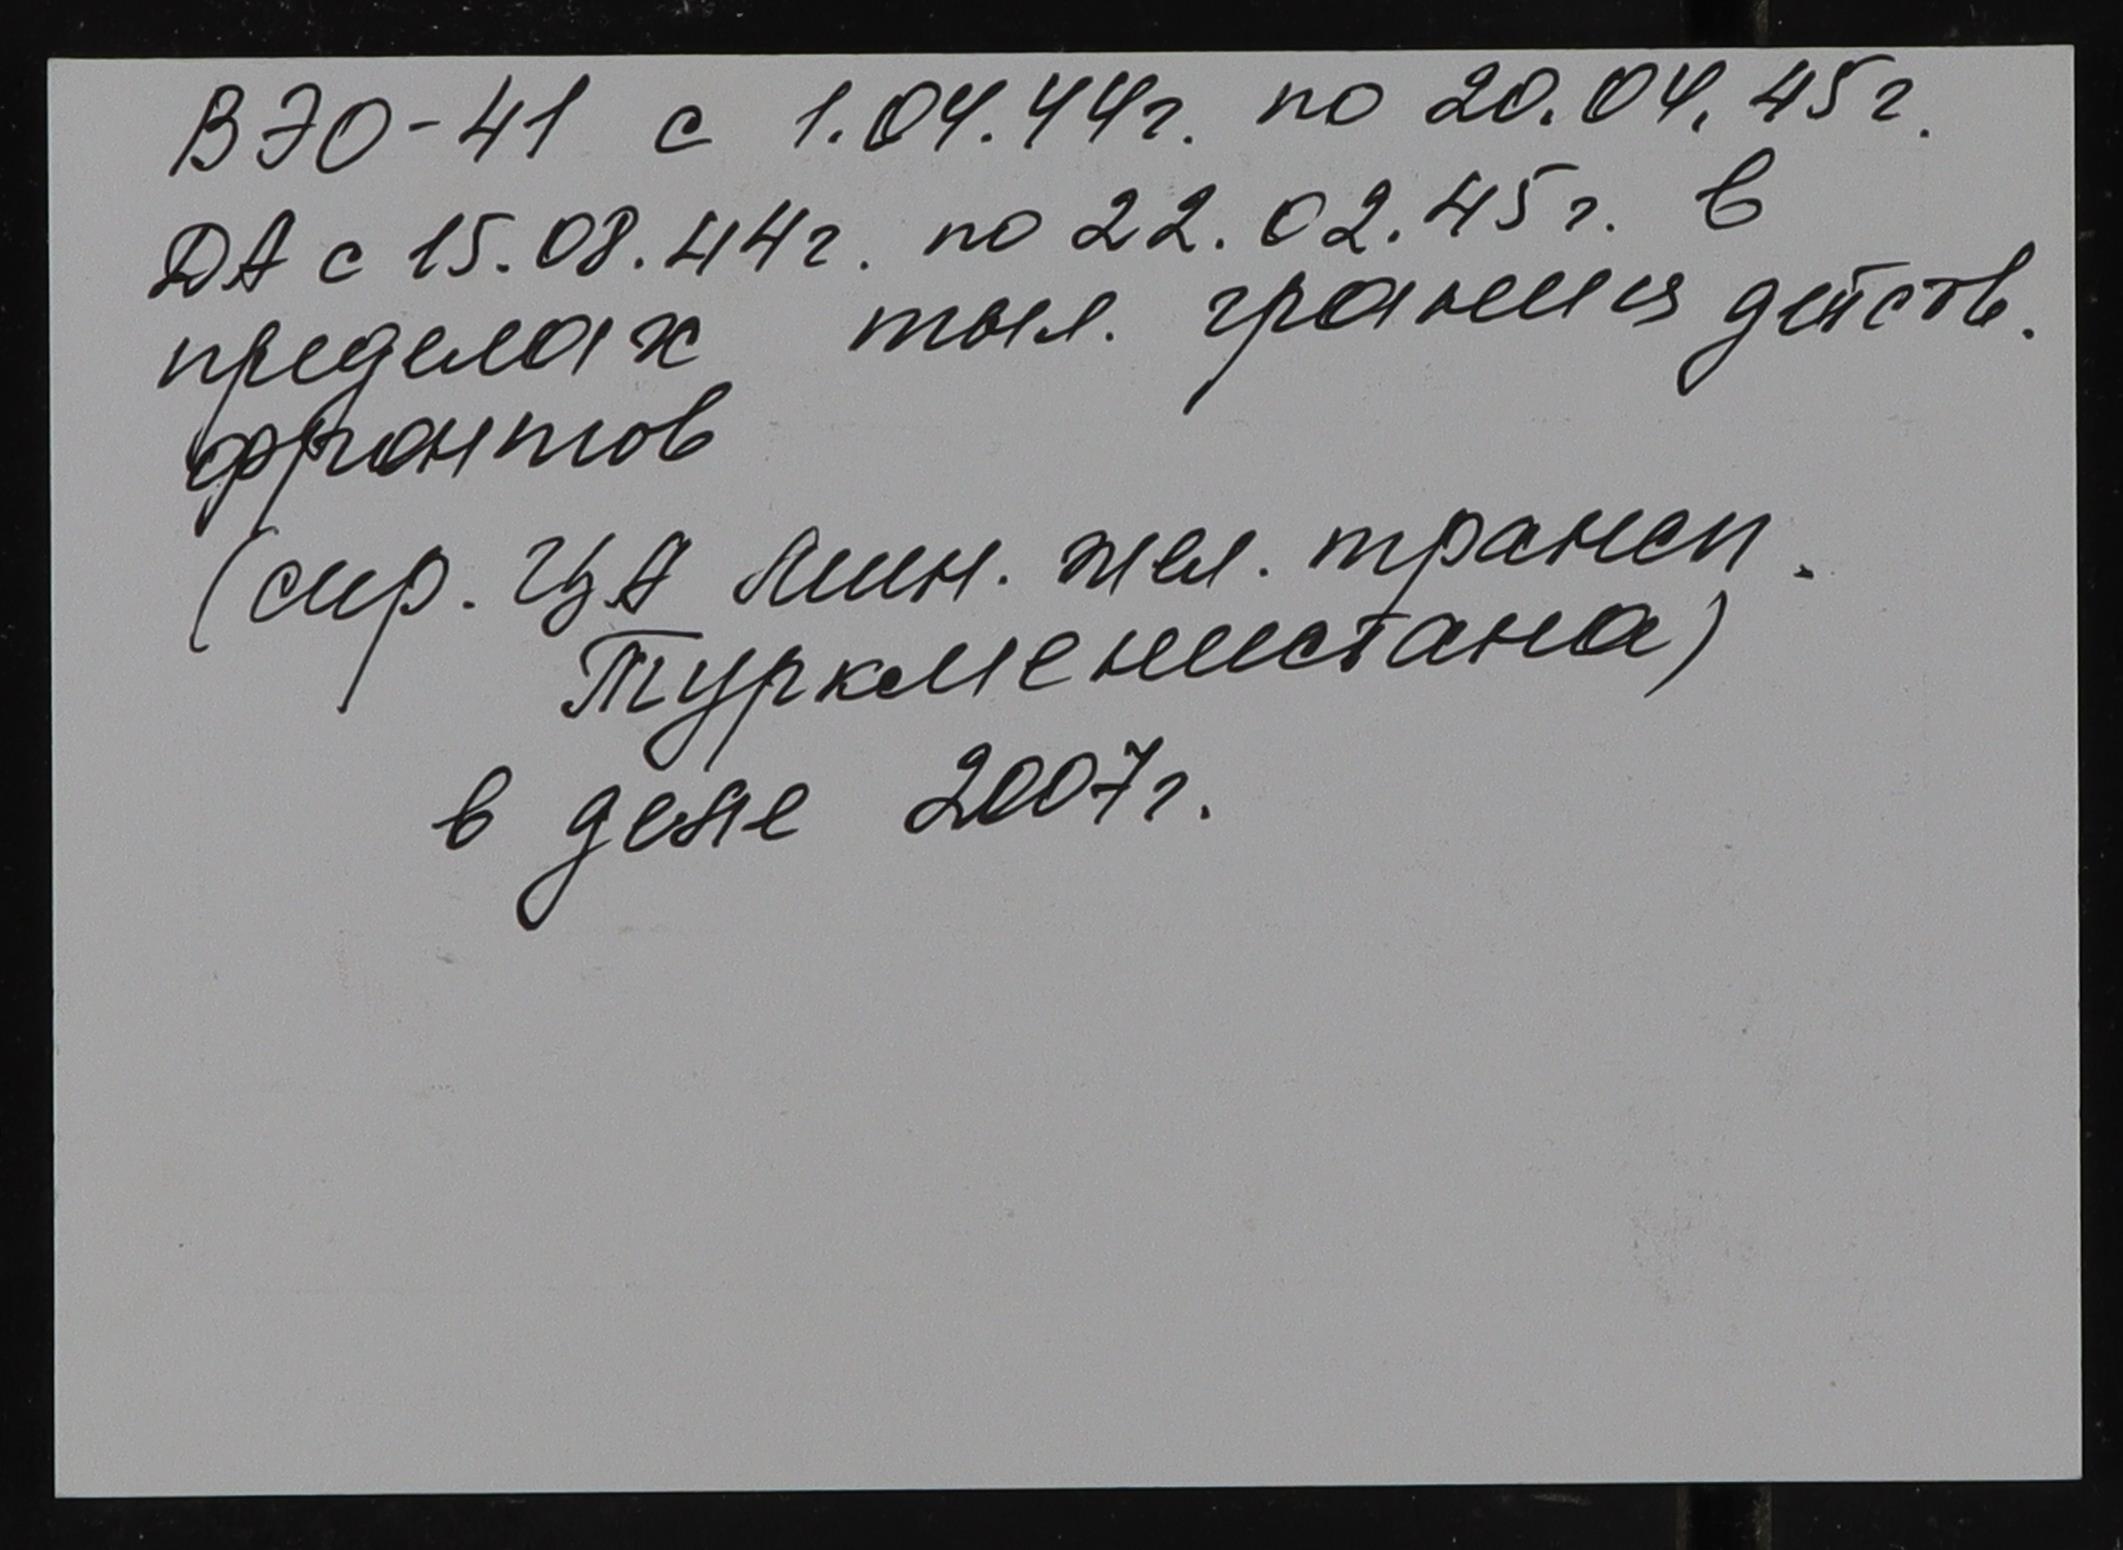 ВЭО-41 с 1.04.44г. по 20.04.45г.
ДА с 15.08.44г. по 22.02.45г. в
пределах тыл. границ действ.
фронтов
(спр. ЦА Мин. жел. трансп.
Туркменистана)
в деле 2007г.